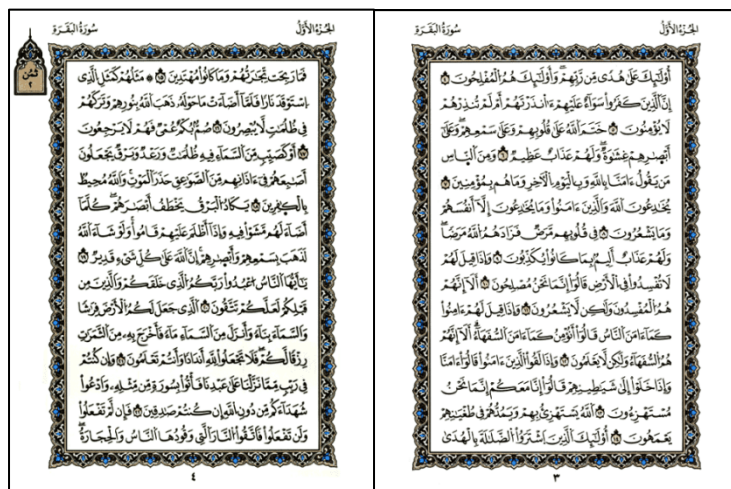 الجزء الأول
سورة البقرة
أولئك على هدى من ربهم وأولئك هم المفلحون
إن الذين كفروا سواء عليهم ءانذرتهم أم لم تنذرهم
لا يؤمنون ختم الله على قلوبهم وعلى سمعهم وعلى
أبصرهم غشوة ولهم عذاب عظيم ومن الناس
من يقول ءامنا بالله وباليوم الآخر وما هم بمؤمنين
يخدعون الله والذين ءامنوا وما يخدعون إلا أنفسهم
وما يشعرون في قلوبهم مرض فزادهم الله مرضا
ولهم عذاب أليم بما كانوا يكذبون وإذا قيل لهم
لا تفسدوا في الأرض قالوا إنما نحن مصلحون ألا إنهم
هم المفسدون ولكن لا يشعرون وإذا قيل لهم ءامنوا
كما ءامن الناس قالوا أنؤمن كما ءامن السفهاء ألا إنهم
هم السفهاء ولكن لا يعلمون وإذا لقوا الذين ءامنوا قالوا ءامنا
وإذا خلوا إلى شيطينهم قالوا إنا معكم إنما نحن
مستهزءون الله يستهزئ بهم ويمدهم في طغينهم
يعمهون أولئك الذين اشتروا الضللة بالهدى
٣
الجزء الأول
سورة البقرة
ثمن
٢
فما ربحت تجرتهم وما كانوا مهتدين مثلهم كمثل الذي
استوقد نارا فلما أضاءت ما حوله ذهب الله بنورهم وتركهم
في ظلمت لا يبصرون صم بكم عمي فهم لا يرجعون
أو كصيب من السماء فيه ظلمت ورعد وبرق يجعلون
أصبعهم في ءاذانهم من الصوعق حذر الموت والله محيط
بالكفرين يكاد البرق يخطف أبصرهم كلما
أضاء لهم مشوا فيه وإذا أظلم عليهم قاموا ولو شاء الله
لذهب بسمعهم وأبصرهم إن الله على كل شيء قدير
يأيها الناس اعبدوا ربكم الذي خلقكم والذين من
قبلكم لعلكم تتقون الذي جعل لكم الأرض فرشا
والسماء بناء وأنزل من السماء ماء فأخرج به من الثمرت
رزقا لكم فلا تجعلوا لله أندادا وأنتم تعلمون وإن كنتم
في ريب مما نزلنا على عبدنا فأتوا بسورة من مثله وادعوا
شهداءكم من دون الله إن كنتم صدقين فإن لم تفعلوا
ولن تفعلوا فاتقوا النار التي وقودها الناس والحجارة
٤